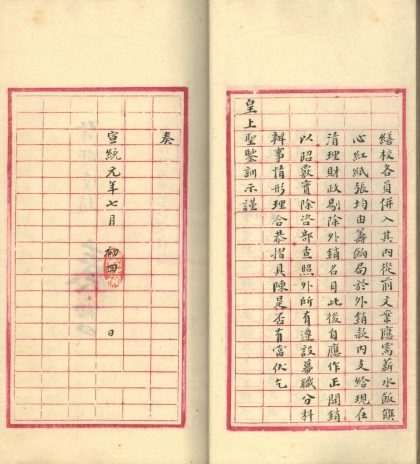 繕校各員併入其內從前文案應需薪水飯饌
心紅紙張均由善後局於外銷款內支給現在
清理財政剔除外銷名目此後自應作正開銷
以昭覈實除咨部查照外所有遵設幕職分科
辦事情形理合恭摺具陳是否有當伏乞
皇上聖鑒訓示謹
奏
宣統元年七月 初四 日